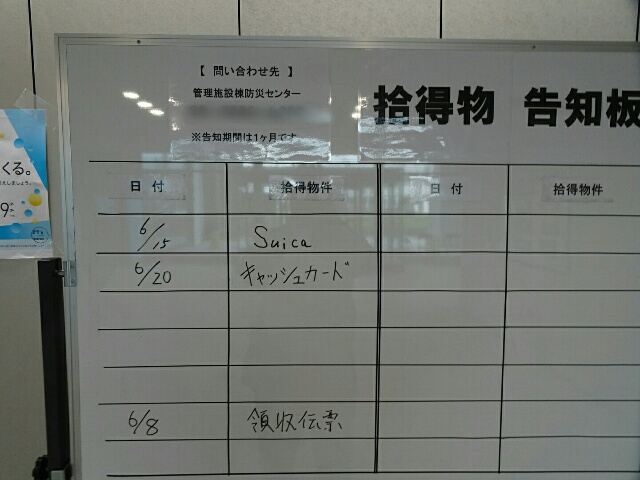 【 問い合わせ先 】
管理施設棟防災センター
※告知期間は1ヶ月です
拾得物 告知板
日付 拾得物件 日付 拾得物件
6/15 Suica
6/20 キャッシュカード
6/8 領収伝票
くる。